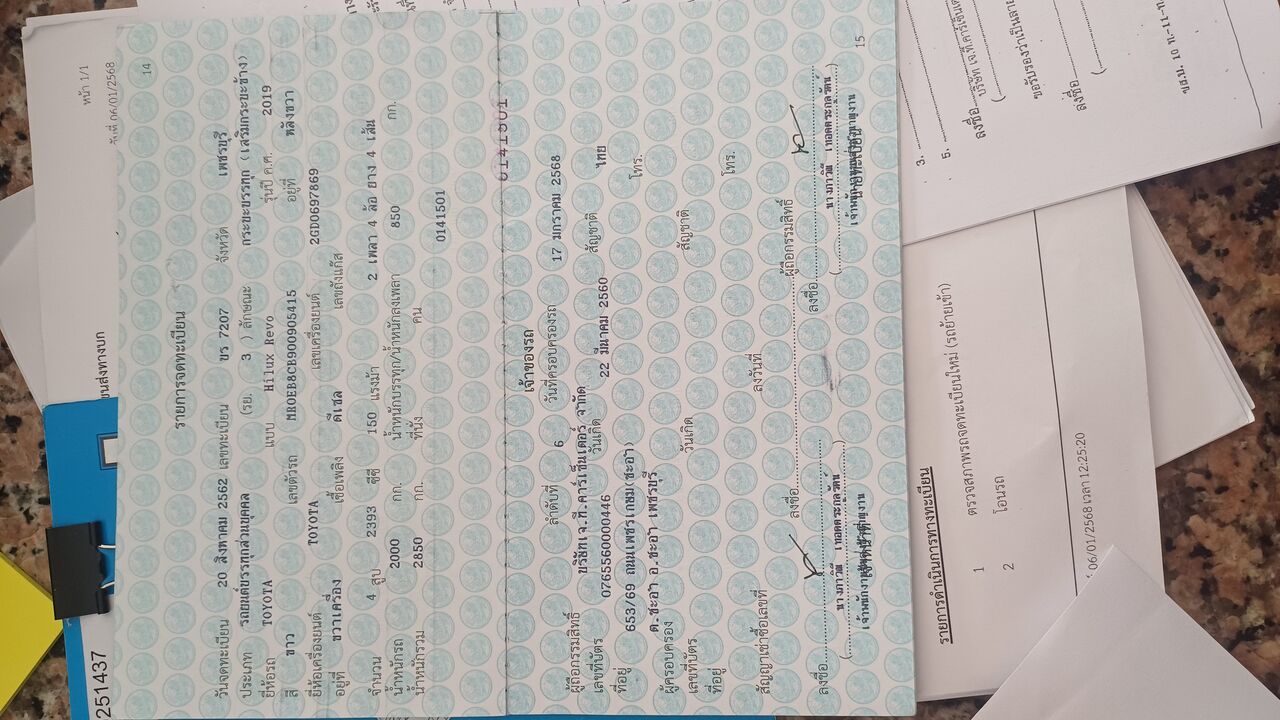 หน้า 1/1
วันที่ 06/01/2568
ขนส่งทางบก
251437
14
รายการจดทะเบียน
วันจดทะเบียน 20 สิงหาคม 2562 เลขทะเบียน ขร 7207 จังหวัด เพชรบุรี
ประเภท รถยนต์บรรทุกส่วนบุคคล (รย. 3 ) ลักษณะ กระบะบรรทุก (เสริมกระบะข้าง)
ยี่ห้อรถ TOYOTA แบบ Hilux Revo รุ่นปี ค.ศ. 2019
สี ขาว เลขตัวรถ MR0EB8CB900905415 อยู่ที่ หลังขวา
ยี่ห้อเครื่องยนต์ TOYOTA เลขเครื่องยนต์ 2GD0697869
อยู่ที่ ขวาเครื่อง เชื้อเพลิง ดีเซล เลขถังแก๊ส
จำนวน 4 สูบ 2393 ซีซี 150 แรงม้า 2 เพลา 4 ล้อ ยาง 4 เส้น
น้ำหนักรถ 2000 กก. น้ำหนักบรรทุก/น้ำหนักลงเพลา 850 กก.
น้ำหนักรวม 2850 กก. ที่นั่ง คน 0141501
0141501
เจ้าของรถ
ลำดับที่ 6 วันที่ครอบครองรถ 17 มกราคม 2568
ผู้ถือกรรมสิทธิ์ บริษัทเจ.ที.คาร์เซ็นเตอร์ จำกัด
เลขที่บัตร 0765560000446 วันเกิด 22 มีนาคม 2560 สัญชาติ ไทย
ที่อยู่ 653/69 ถนนเพชรเกษม(ชะอำ) โทร.
ต.ชะอำ อ.ชะอำ เพชรบุรี
ผู้ครอบครอง
เลขที่บัตร วันเกิด สัญชาติ
ที่อยู่ โทร.
สัญญาเช่าซื้อเลขที่ ลงวันที่ ผู้ถือกรรมสิทธิ์
ลงชื่อ ลงชื่อ
15
รายการดำเนินการทางทะเบียน
1 ตรวจสภาพรถจดทะเบียนใหม่ (รถย้ายเข้า)
2 โอนรถ
06/01/2568 เวลา 12:25:20
3.
5.
ลงชื่อ
ขอรับรองว่าเป็นหลาย
ลงชื่อ
(